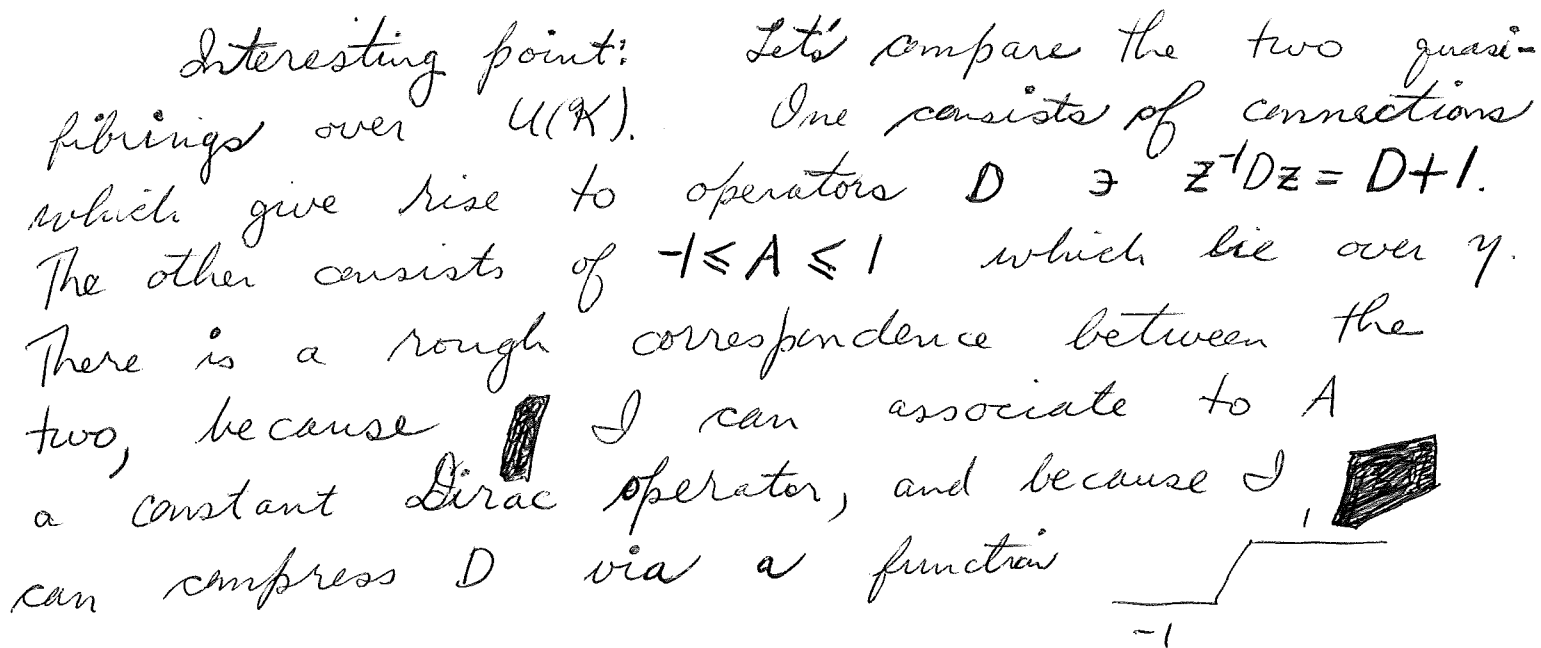 Interesting point: Let's compare the two quasi-
fibrings over U(K). One consists of connections
which give rise to operators D ∋ z⁻¹Dz = D+1.
The other consists of -1 ≤ A ≤ 1 which lie over η.
There is a rough correspondence between the
two, because I can associate to A
a constant Dirac operator, and because I
can compress D via a function
1
-1